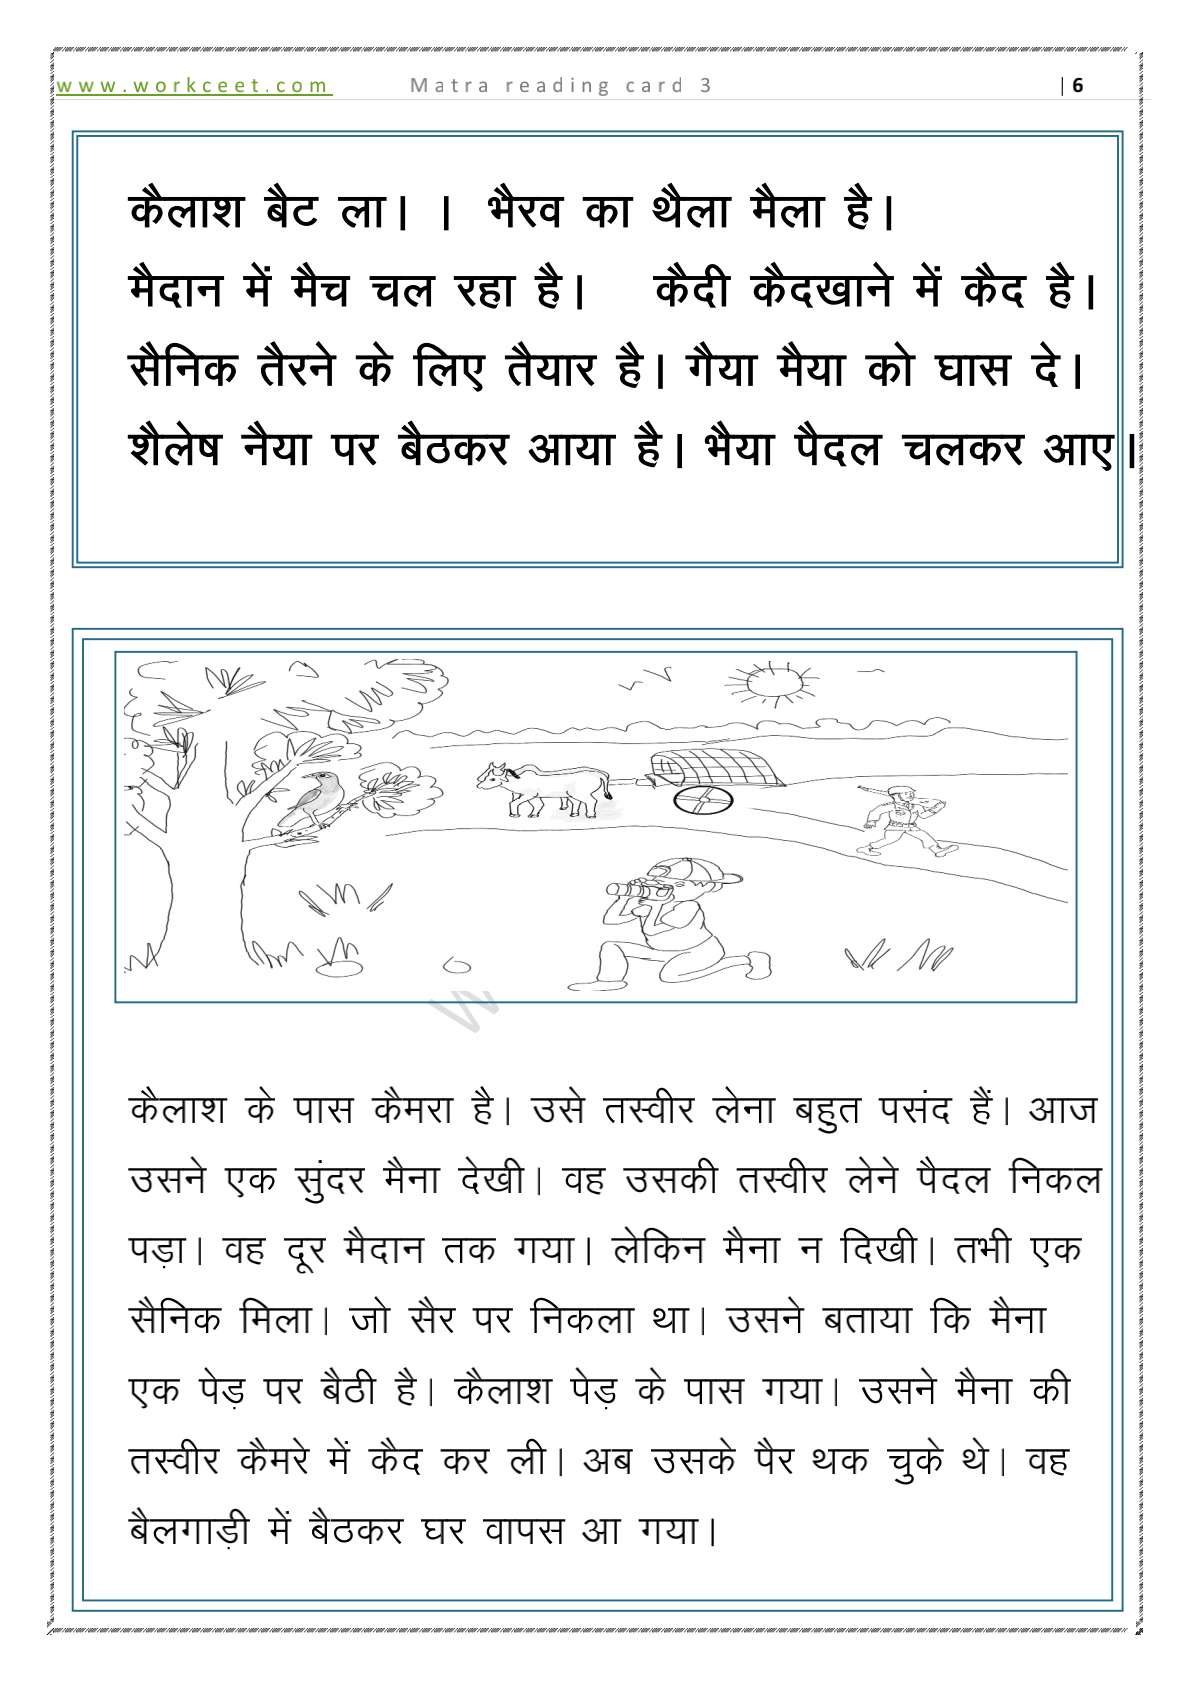 www.workceet.com Matra reading card 3 | 6
कैलाश बैट ला। । भैरव का थैला मैला है।
मैदान में मैच चल रहा है। कैदी कैदखाने में कैद है।
सैनिक तैरने के लिए तैयार है। गैया मैया को घास दे।
शैलेष नैया पर बैठकर आया है। भैया पैदल चलकर आए।
W
कैलाश के पास कैमरा है। उसे तस्वीर लेना बहुत पसंद हैं। आज
उसने एक सुंदर मैना देखी। वह उसकी तस्वीर लेने पैदल निकल
पड़ा। वह दूर मैदान तक गया। लेकिन मैना न दिखी। तभी एक
सैनिक मिला। जो सैर पर निकला था। उसने बताया कि मैना
एक पेड़ पर बैठी है। कैलाश पेड़ के पास गया। उसने मैना की
तस्वीर कैमरे में कैद कर ली। अब उसके पैर थक चुके थे। वह
बैलगाड़ी में बैठकर घर वापस आ गया।